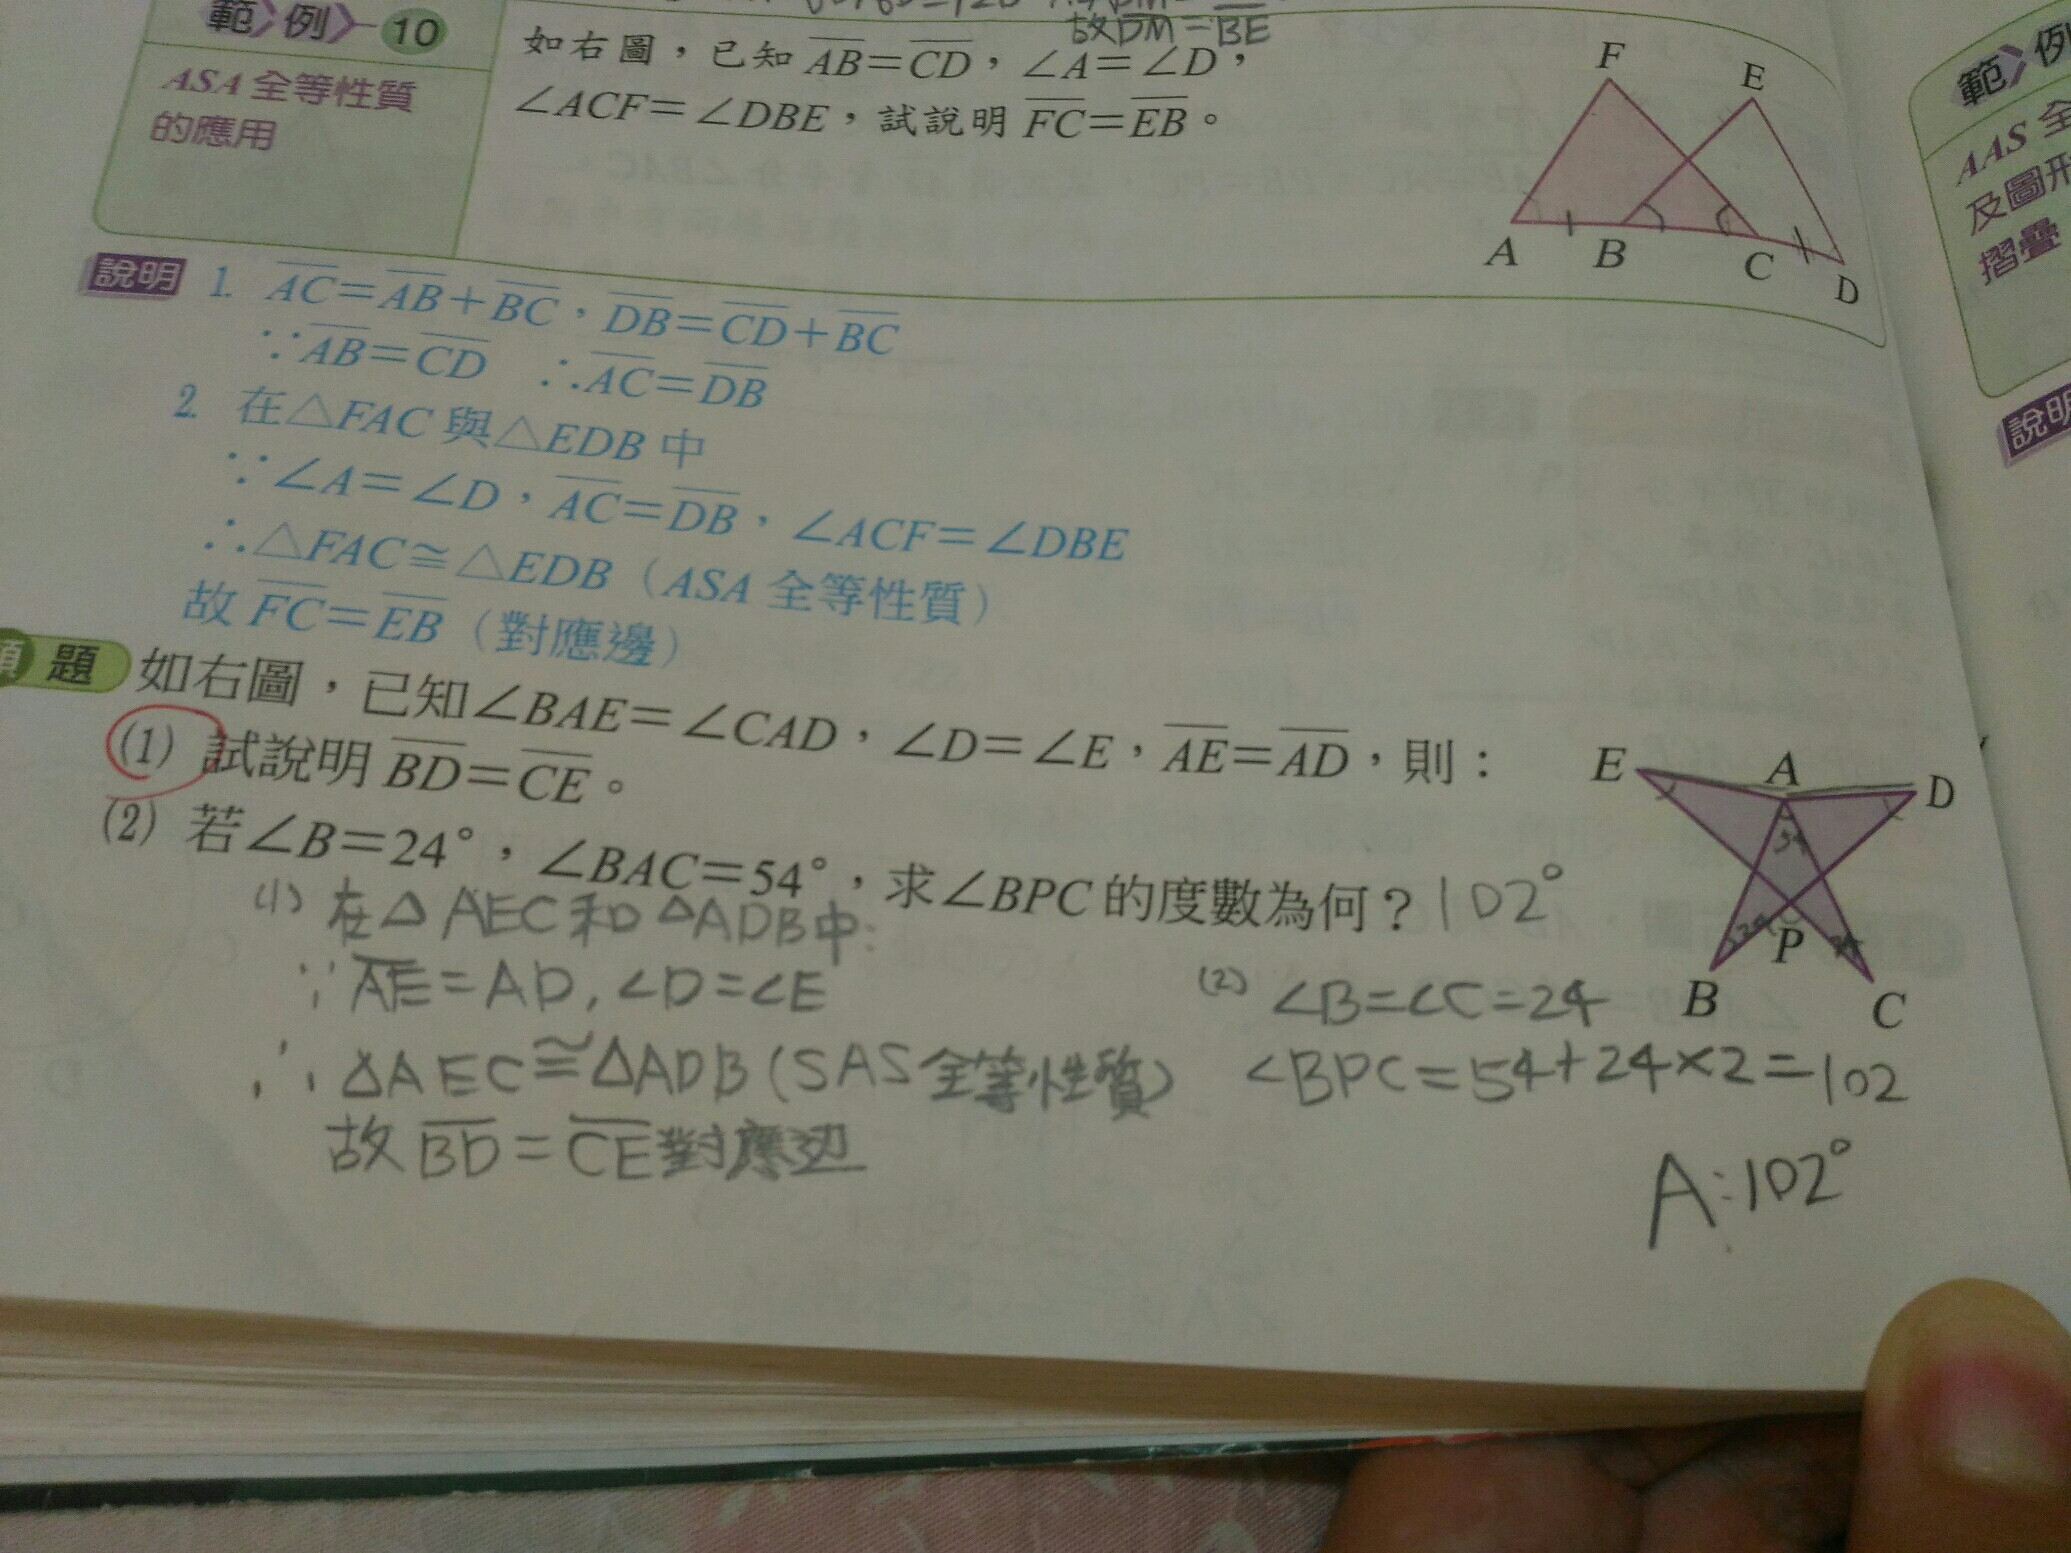 故DM=BE
範例 10
ASA 全等性質
的應用
如右圖，已知 AB=CD，∠A=∠D，
∠ACF=∠DBE，試說明 FC=EB。
F
E
A
B
C
D
說明 1. AC=AB+BC，DB=CD+BC
∵AB=CD ∴AC=DB
2. 在△FAC 與△EDB 中
∵∠A=∠D，AC=DB，∠ACF=∠DBE
∴△FAC≅△EDB（ASA 全等性質）
故 FC=EB（對應邊）
題 如右圖，已知∠BAE=∠CAD，∠D=∠E，AE=AD，則：
(1) 試說明 BD=CE。
(2) 若∠B=24°，∠BAC=54°，求∠BPC 的度數為何？102°
E
A
D
54
P
B
C
(1) 在△AEC和△ADB中:
∵AE=AD,∠D=∠E
∴△AEC≅△ADB(SAS全等性質)
故BD=CE對應边
(2) ∠B=∠C=24
∠BPC=54+24×2=102
A:102°
範例
AAS 全
及圖形
摺疊
說明